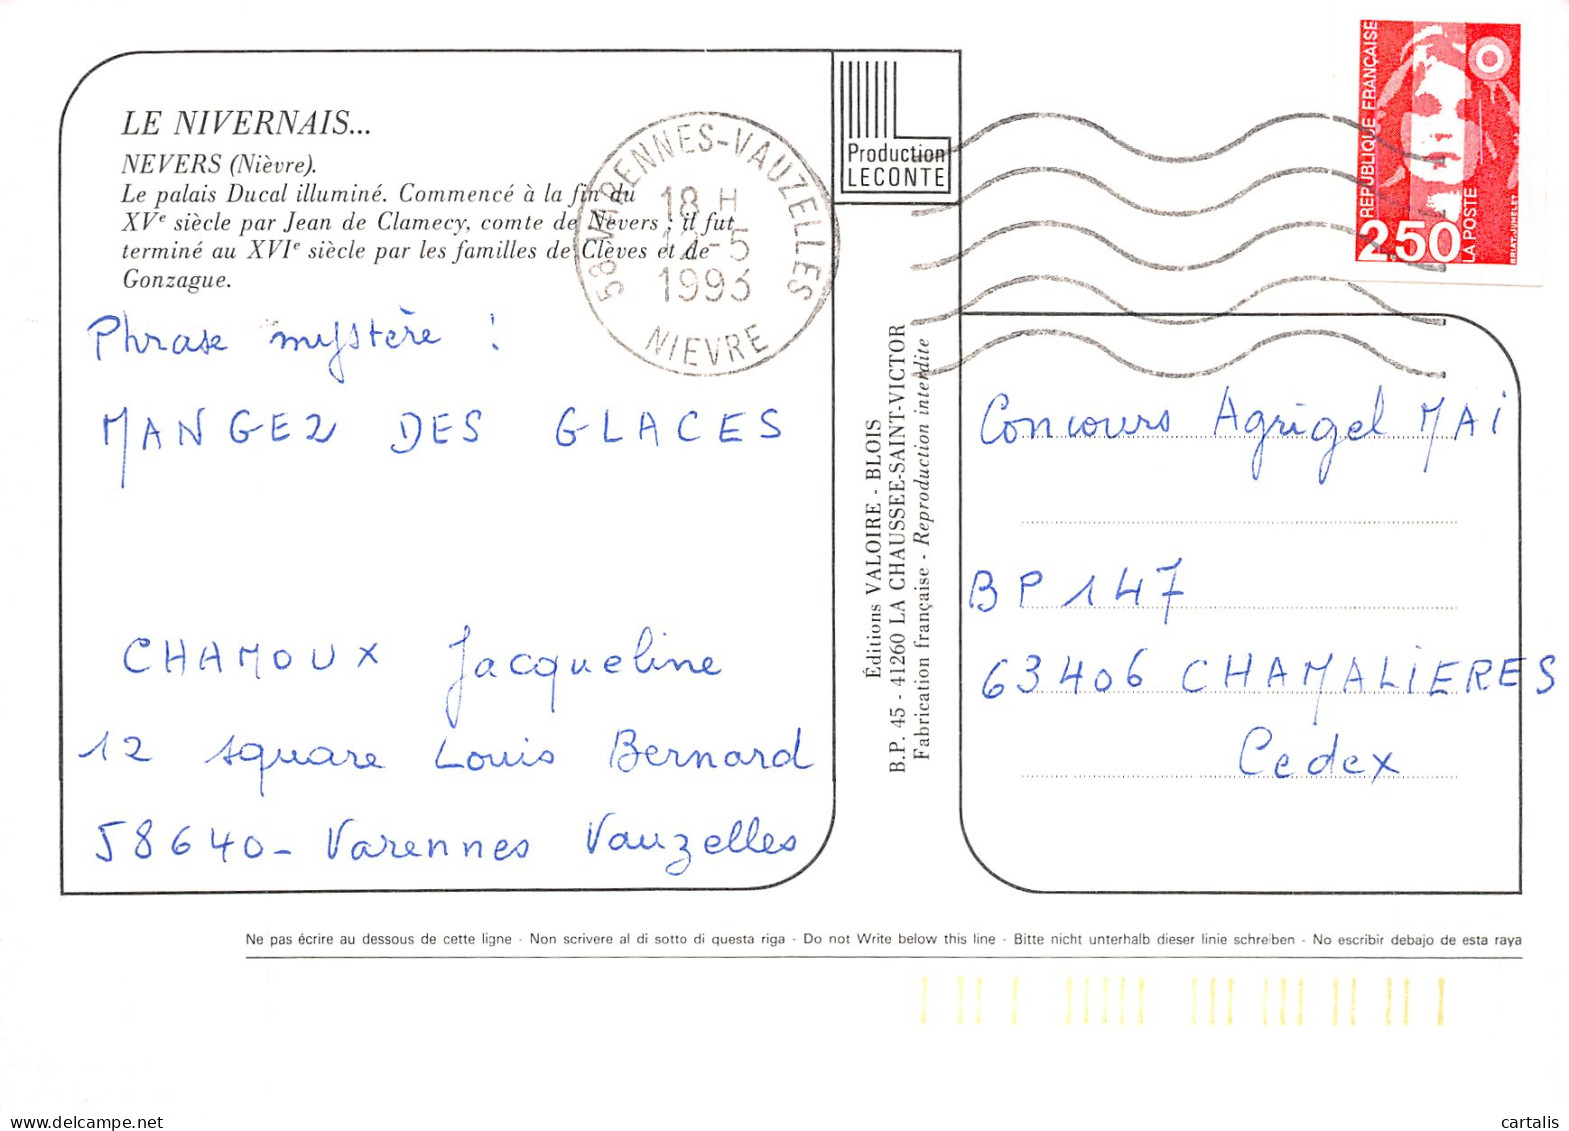 LE NIVERNAIS...
NEVERS (Nièvre).
Le palais Ducal illuminé. Commencé à la fin du
XVe siècle par Jean de Clamecy, comte de Nevers ; il fut
terminé au XVIe siècle par les familles de Clèves et de
Gonzague.
Phrase mystère :
MANGEZ DES GLACES
CHAMOUX Jacqueline
12 square Louis Bernard
58640 - Varennes Vauzelles
58 VARENNES-VAUZELLES
18 H
12-5
1993
NIEVRE
Production
LECONTE
Éditions VALOIRE - BLOIS
B.P. 45 - 41260 LA CHAUSSEE-SAINT-VICTOR
Fabrication française - Reproduction interdite
REPUBLIQUE FRANÇAISE
2,50
LA POSTE
BRIAT-JUMELET
Concours Agrigel MAi
BP 147
63406 CHAMALiERES
Cedex
Ne pas écrire au dessous de cette ligne - Non scrivere al di sotto di questa riga - Do not Write below this line - Bitte nicht unterhalb dieser linie schreiben - No escribir debajo de esta raya
cartalis